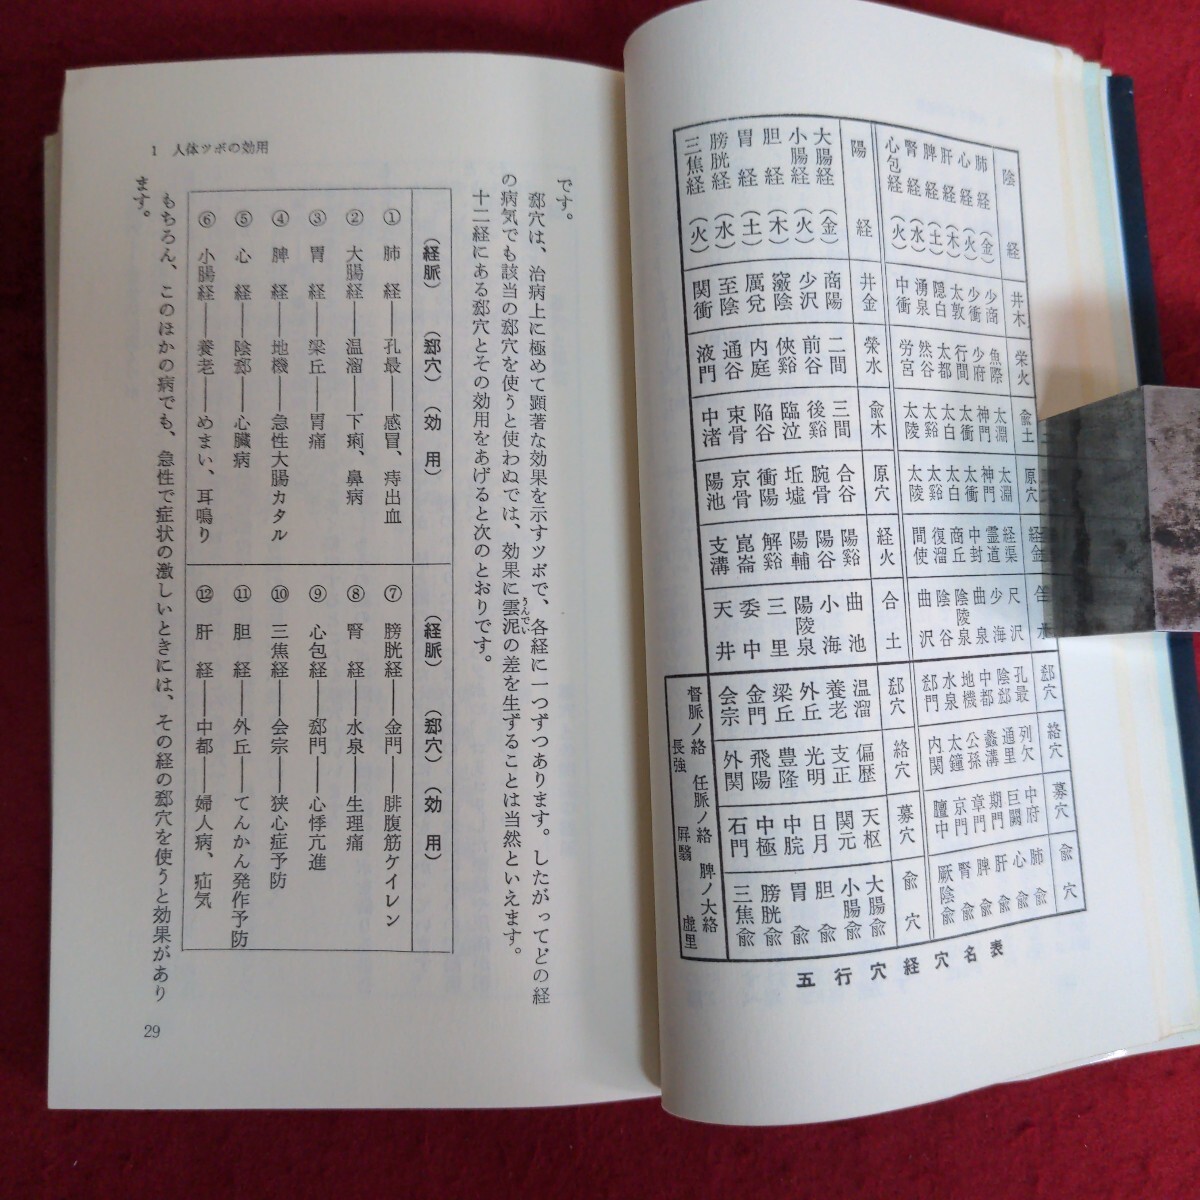 陰経 井木 栄火 兪土 原穴 経金 郄穴 絡穴 募穴 兪穴
肺経（金） 少商 魚際 太淵 太淵 経渠 尺沢 孔最 列欠 中府 肺兪
心経（火） 少衝 少府 神門 神門 霊道 少海 陰郄 通里 巨闕 心兪
肝経（木） 太敦 行間 太衝 太衝 中封 曲泉 中都 蠡溝 期門 肝兪
脾経（土） 隠白 太都 太白 太白 商丘 陰陵泉 地機 公孫 章門 脾兪
腎経（水） 湧泉 然谷 太谿 太谿 復溜 陰谷 水泉 太鐘 京門 腎兪
心包経（火） 中衝 労宮 太陵 太陵 間使 曲沢 郄門 内関 膻中 厥陰兪
陽経 井金 滎水 兪木 原穴 経火 合土 郄穴 絡穴 募穴 兪穴
大腸経（金） 商陽 二間 三間 合谷 陽谿 曲池 温溜 偏歴 天枢 大腸兪
小腸経（火） 少沢 前谷 後谿 腕骨 陽谷 小海 養老 支正 関元 小腸兪
胆経（木） 竅陰 俠谿 臨泣 坵墟 陽輔 陽陵泉 外丘 光明 日月 胆兪
胃経（土） 厲兌 内庭 陥谷 衝陽 解谿 三里 梁丘 豊隆 中脘 胃兪
膀胱経（水） 至陰 通谷 束骨 京骨 崑崙 委中 金門 飛陽 中極 膀胱兪
三焦経（火） 関衝 液門 中渚 陽池 支溝 天井 会宗 外関 石門 三焦兪
督脈ノ絡 長強 任脈ノ絡 屛翳 脾ノ大絡 虚里
五行穴経穴名表
1 人体ツボの効用
です。
郄穴は、治病上に極めて顕著な効果を示すツボで、各経に一つずつあります。したがってどの経
の病気でも該当の郄穴を使うと使わぬでは、効果に雲泥（うんでい）の差を生ずることは当然といえます。
十二経にある郄穴とその効用をあげると次のとおりです。
（経脈）（郄穴）（効　用）
① 肺　経――孔最――感冒、痔出血
② 大腸経――温溜――下痢、鼻病
③ 胃　経――梁丘――胃痛
④ 脾　経――地機――急性大腸カタル
⑤ 心　経――陰郄――心臓病
⑥ 小腸経――養老――めまい、耳鳴り
（経脈）（郄穴）（効　用）
⑦ 膀胱経――金門――腓腹筋ケイレン
⑧ 腎　経――水泉――生理痛
⑨ 心包経――郄門――心悸亢進
⑩ 三焦経――会宗――狭心症予防
⑪ 胆　経――外丘――てんかん発作予防
⑫ 肝　経――中都――婦人病、疝気
もちろん、このほかの病でも、急性で症状の激しいときには、その経の郄穴を使うと効果があり
ます。
29